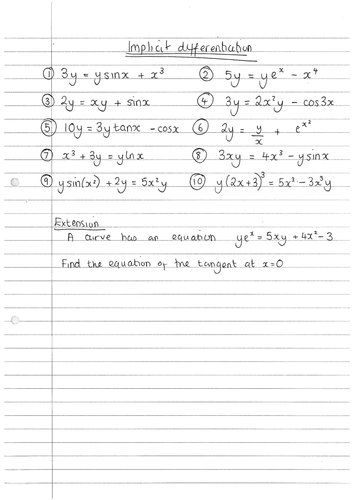 Implicit differentiation
① 3y = ysinx + x³ ② 5y = yeˣ - x⁴
③ 2y = xy + sinx ④ 3y = 2x²y - cos3x
⑤ 10y = 3ytanx - cosx ⑥ 2y = y/x + e^x²
⑦ x³ + 3y = ylnx ⑧ 3xy = 4x³ - ysinx
⑨ ysin(x²) + 2y = 5x²y ⑩ y(2x+3)³ = 5x³ - 3x³y
Extension
A curve has an equation yeˣ = 5xy + 4x² - 3
Find the equation of the tangent at x=0